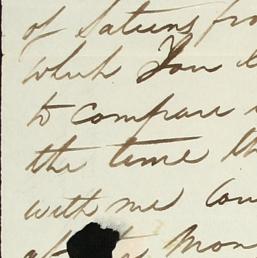 of Saturns fro
which You
to compare
the time th
with me Cou
Mon